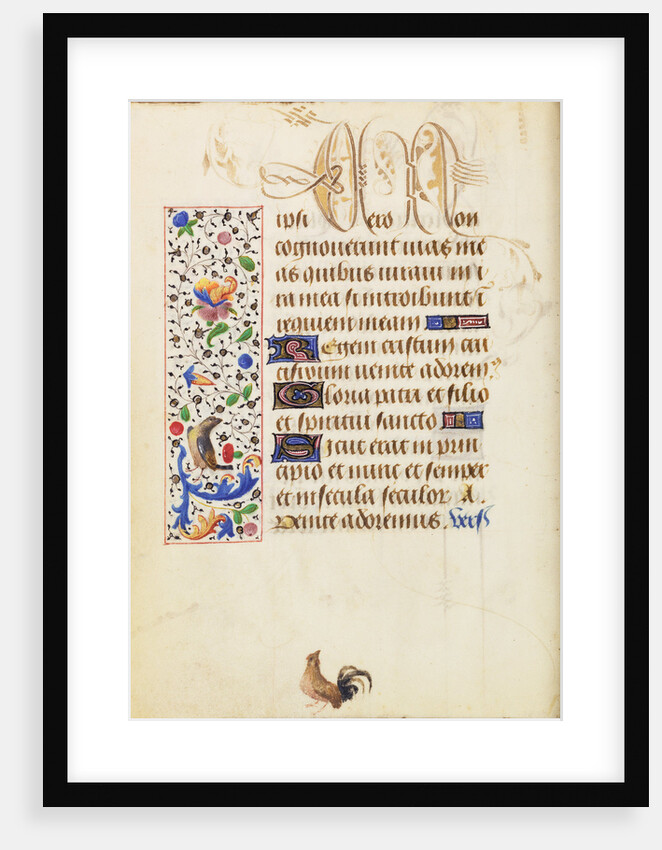 ipsi vero non
cognouerunt uias me
as quibus iuraui in i
ra mea si introibunt i
requiem meam
Regem castum ca
tisuum uenite adorem9
Gloria patri et filio
et spiritui sancto
Sicut erat in prin
cipio et nunc et semper
et in secula seculor A.
Uenite adoremus. Vers